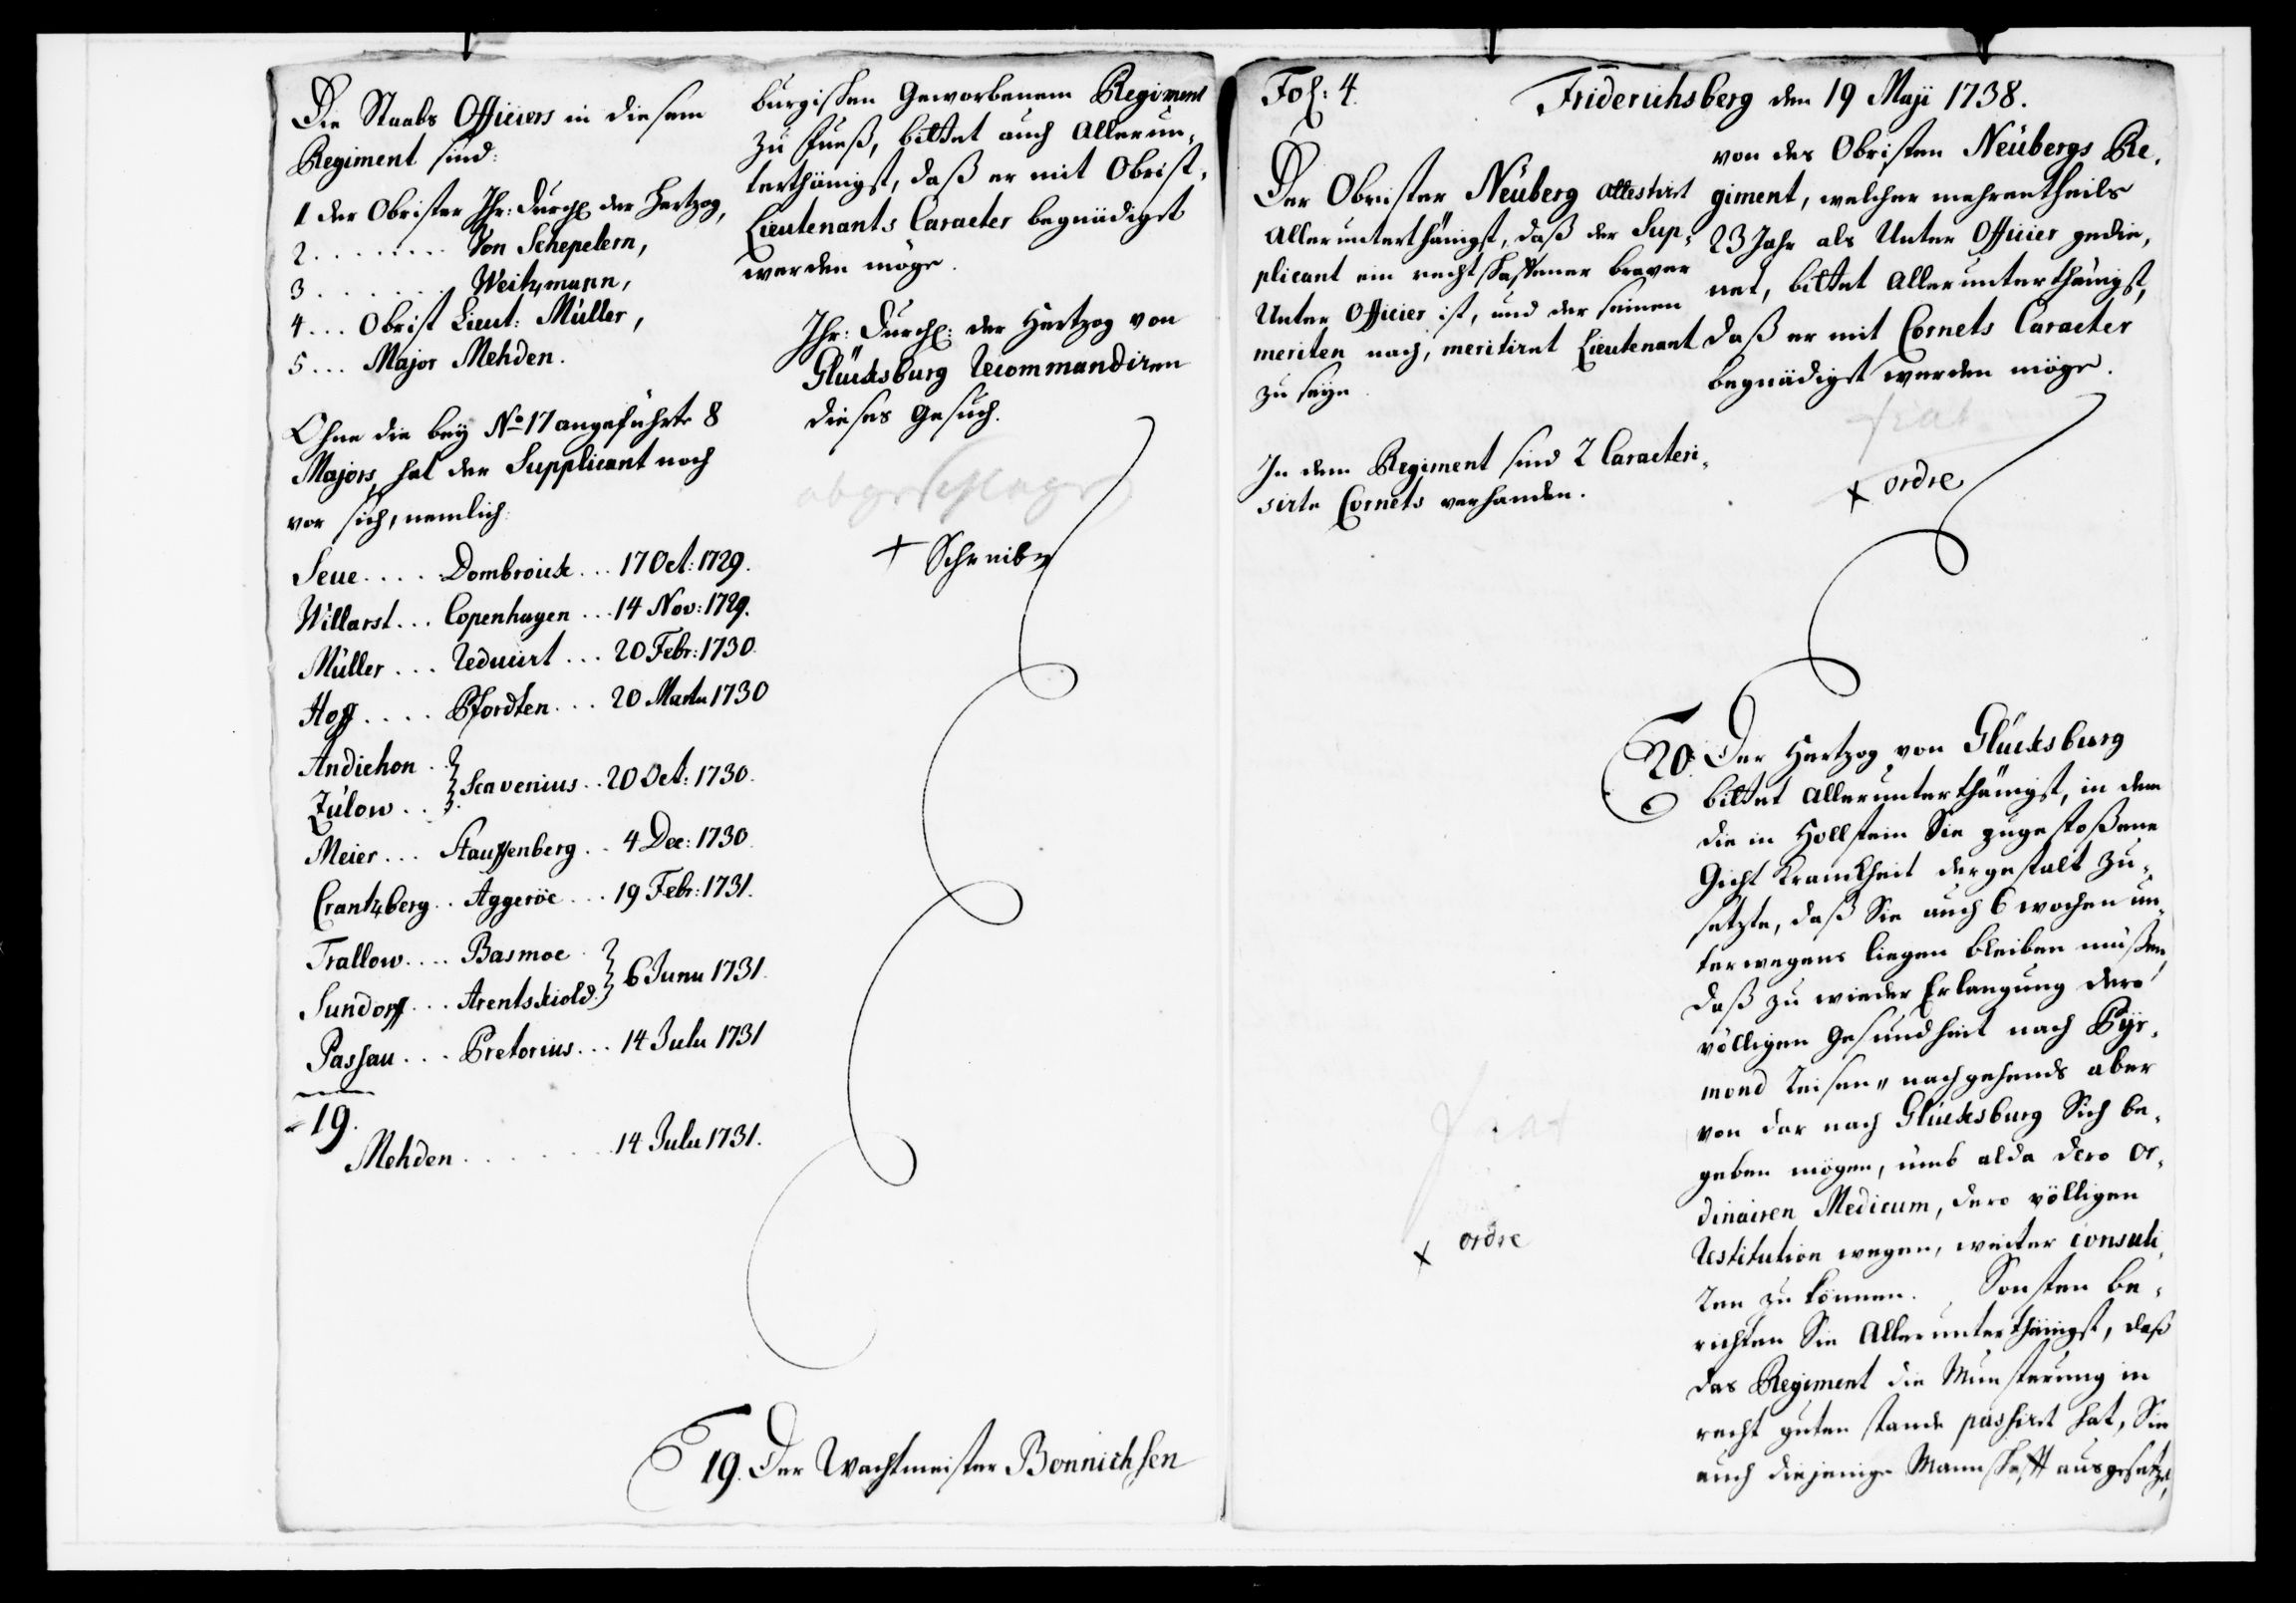 Die Staabs Officiers in diesem
Regiment sind:
1 der Obrister Ihr: Durchl der Hertzog,
2 . . . . . . . Von Schepelern,
3 . . . . . . . Weitzmann,
4 . . . Obrist Lieut: Müller,
5 . . . Major Mehden.
Ohne die beÿ No 17 angeführte 8
Majors, hat der Supplicant noch
vor sich, nemlich:
Seue . . . . Dombroick . . . 17 Oct: 1729.
Willarst . . . Copenhagen . . . 14 Nov: 1729.
Müller . . . reducirt . . . 20 Febr: 1730.
Hoff . . . . Pfordten . . . 20 Martii 1730
Andichon . .
Zülow . . . Scavenius . . 20 Oct: 1730.
Meier . . . Stauffenberg . . 4 Dec: 1730.
Crantzberg . . Aggeröe . . . 19 Febr: 1731.
Trallow . . . . Basmoe
Sundorff . . . Arentskiold. 6 Junii 1731.
Passau . . . Pretorius . . . 14 Julii 1731
19.
Mehden . . . . . . . . 14 Julii 1731.
burgischen Geworbenem Regiment
zu Fueß, bittet auch Allerun-
terthänigst, daß er mit Obrist-
Lieutenants Caracter begnädiget
werden möge.
Ihr: Durchl: der Hertzog von
Glücksburg recommandiren
dieses Gesuch.
abgeschlagen
+ Schreiben
19. Der Wachtmeister Bonnichsen
Fol: 4.
Friderichsberg den 19 Maji 1738.
Der Obrister Neuberg attestirt
Allerunterthänigst, daß der Sup-
plicant ein rechtschaffener braver
Unter Officier ist, und der seinen
meriten nach, meritiret Lieutenant
zu seÿn
In dem Regiment sind 2 Caracteri-
sirte Cornets verhanden.
von des Obristen Neübergs Re-
giment, welcher mehrentheils
23 Jahr als Unter Officier gedie-
net, bittet Allerunterthänigst,
daß er mit Cornets Caracter
begnädiget werden möge.
fiat
x ordre
20. Der Hertzog von Glücksburg
bittet Allerunterthänigst, in dem
die in Hollstein Sie zugestoßene
Gicht Kranckheit dergestalt zu-
setzte, daß Sie auch 6 wochen un-
terwegens liegen bleiben müßen,
daß zu wieder Erlangung dero
völligen Gesundheit nach Pÿr-
mond reisen, nachgehends aber
von dar nach Glücksburg Sich be-
geben mögen, umb alda dero or-
dinairen Medicum, dero völligen
restitution wegen, weiter consuli-
ren zu können. Sonsten be-
richten Sie Allerunterthänigst, daß
das Regiment die Munsterung in
recht guten stande passirt hat, Sie
auch diejenige Mannschafft ausgesetzet,
fiat
x ordre